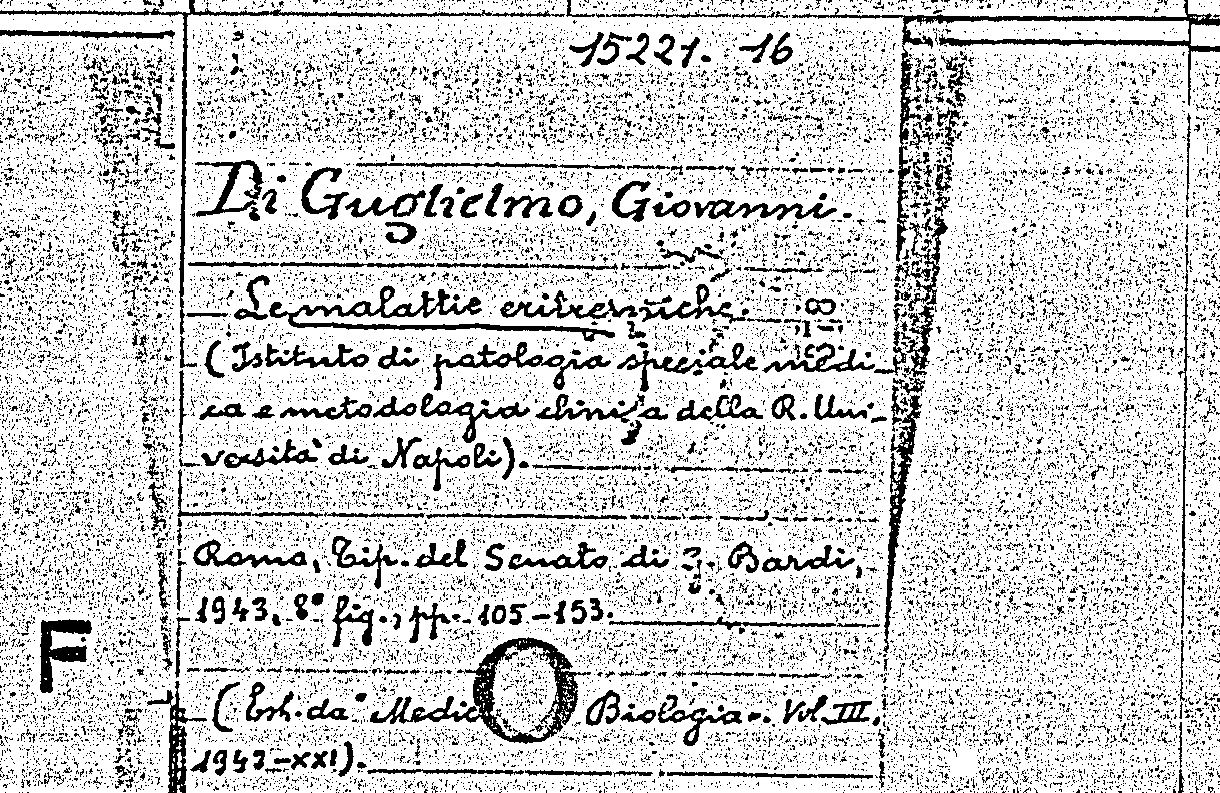 15221. -16
Di Guglielmo, Giovanni.
Le malattie eritremiche.
(Istituto di patologia speciale medi-
ca e metodologia clinica della R. Uni-
versità di Napoli).
Roma, Tip. del Senato di G. Bardi,
1943. 8° fig., pp. 105-153.
F
(Estr. da "Medic Biologia". Vol. III.
1943-XXI).